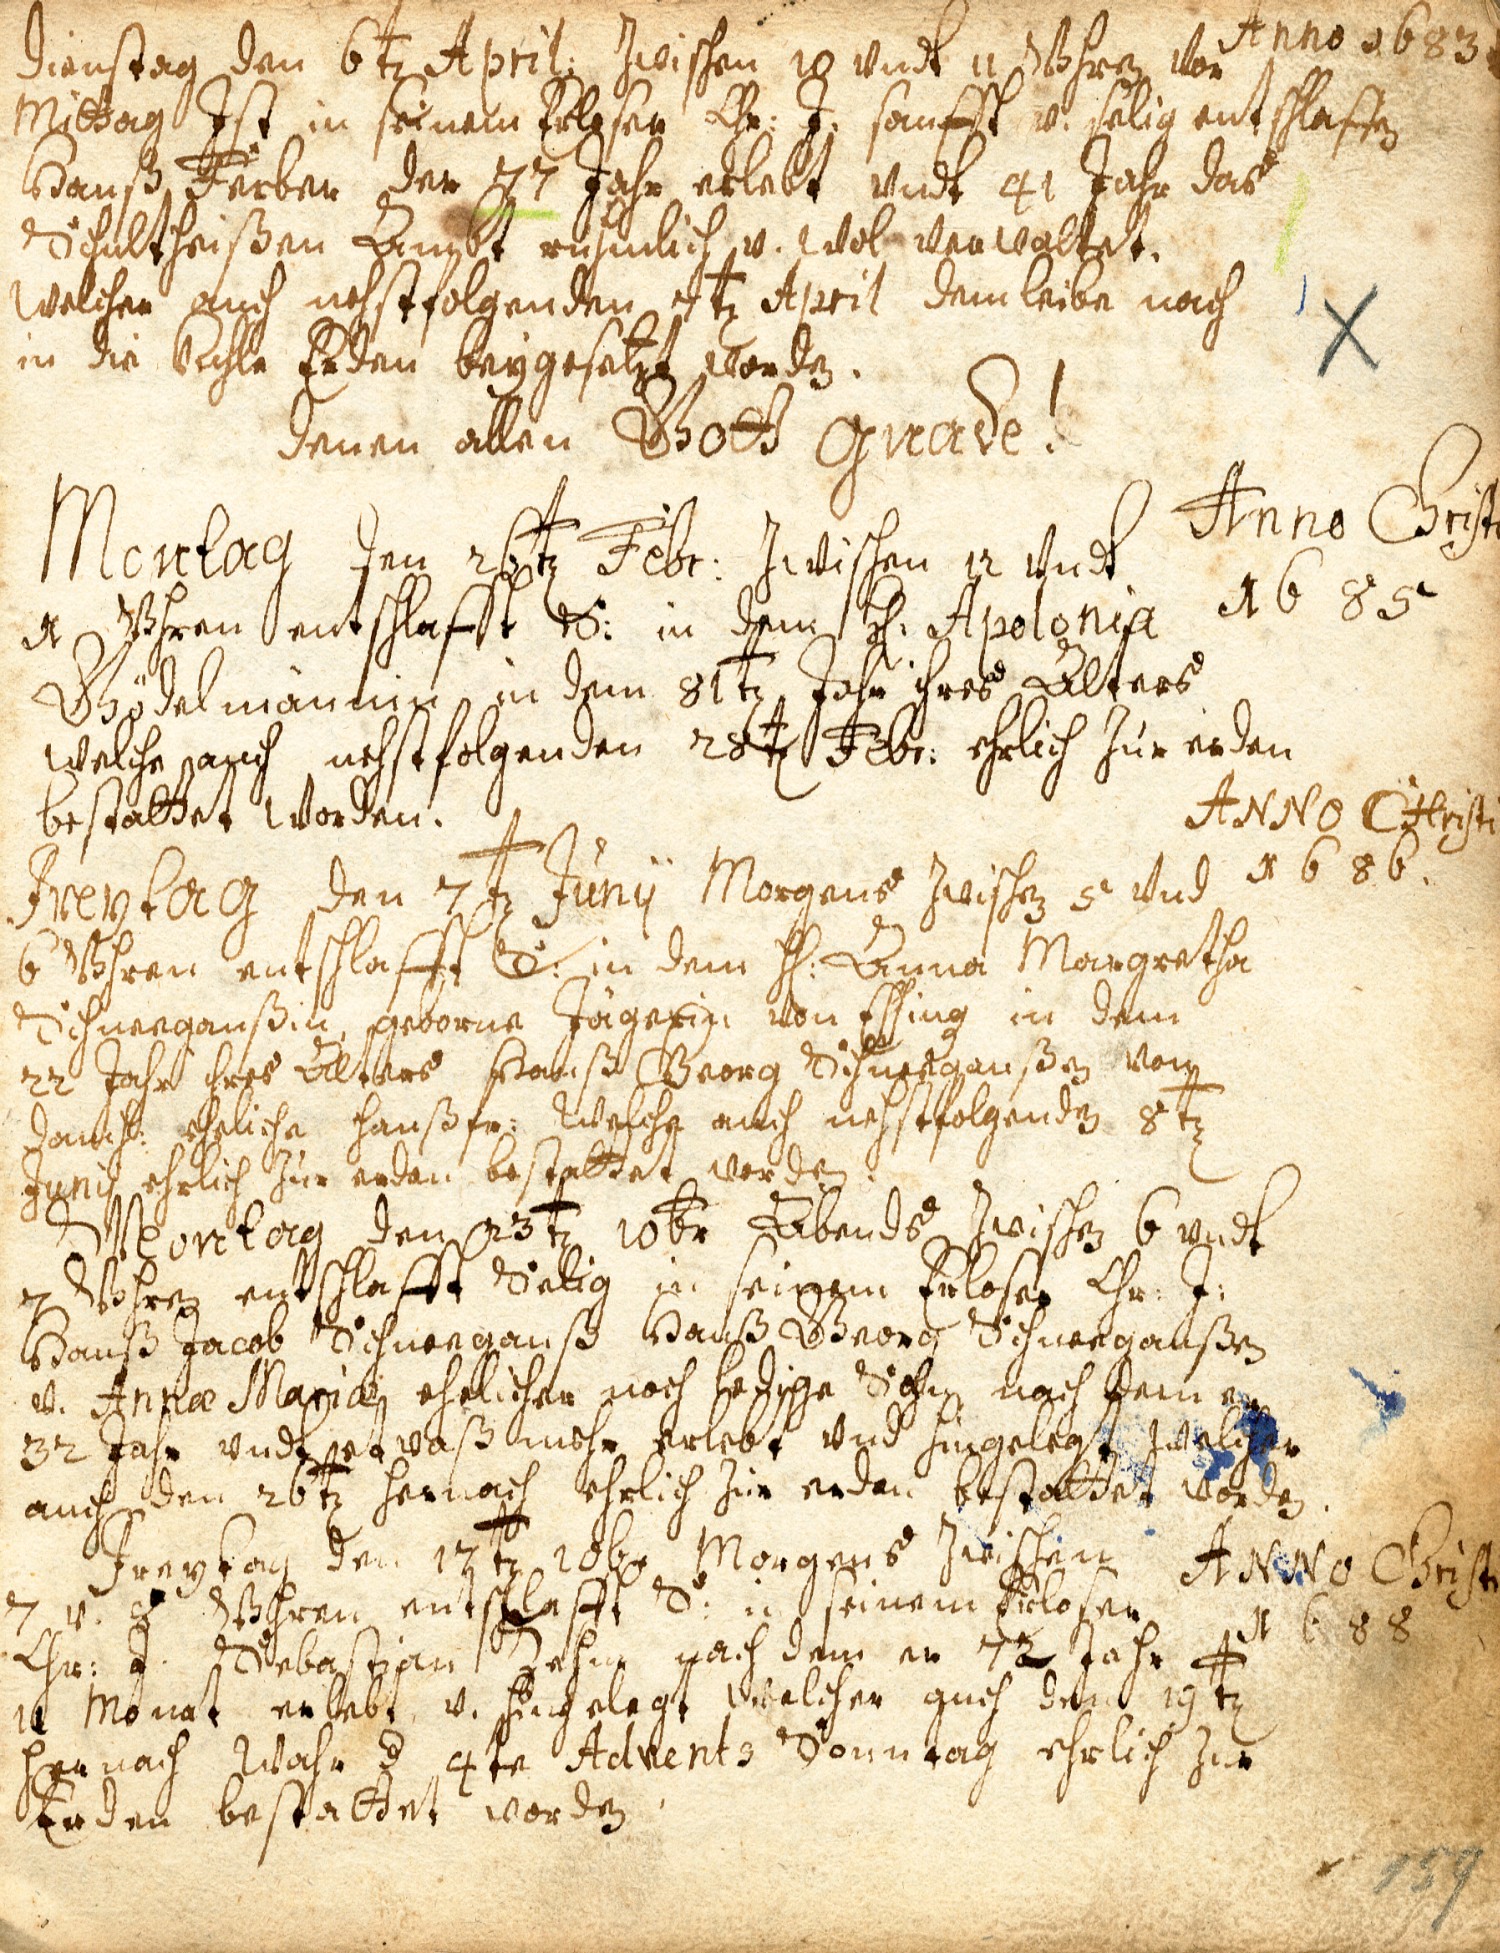 Dienstag den 6t April: Zwischen 10 vndt 11 Vhren vor Anno 1683
Mittag Ist in seinem Erlöser Chr: J: sanfft v. selig entschlaffen
Hanß Ferber der 77 Jahr erlebt vndt 41 Jahr das
Schultheißen Ambt rühmlich v. wol verwaltet.
welcher auch nehstfolgenden 7t April dem leibe nach
in die kühle Erden beygesetzt worden.
denen allen Gott gnade!
Montag den 26t Febr: Zwischen 12 vndt Anno Christi
1 Vhren entschlafft S: in dem H. Apolonia 1685
Gödelmännin in dem 81t Jahr ihres Alters
welche auch nehstfolgenden 28t Febr: ehrlich zur erden
bestattet worden.
ANNO CHristi
Freytag den 7t Junij Morgens Zwischen 5 vnd 1686.
6 Vhren entschlafft S: in dem H: Anna Margretha
Schneeganßin, geborne Jägerin von in dem
22 Jahr ihres Alters Hanß Georg Schneeganßen von
eheliche haußfr: welche auch nehstfolgenden 8t
Junij ehrlich zur erden bestattet worden.
Montag den 23t 10br Abends Zwischen 6 vndt
7 Vhren entschlafft Selig in seinem Erloser Chr: J:
Hanß Jacob Schneeganß Hanß Georg Schneeganßen
v. Annæ Mariæ ehelicher noch ledige Sohn nach dem er
32 Jahr vndt etwaß mehr erlebt vnd hingelegt welcher
auch den 26t hernach ehrlich zur erden bestattet worden.
Freytag den 17t 10br Morgens Zwischen ANNO Christi
7 v. 8 Vhren entschlafft S: in seinem Erloser 1688
Chr: J. Sebastian Dehm nach dem er 72 Jahr
11 Monat erlebt v. hingelegt welcher auch den 19t
hernach wahr d 4te Advents Sonntag ehrlich zur
Erden bestattet worden
159